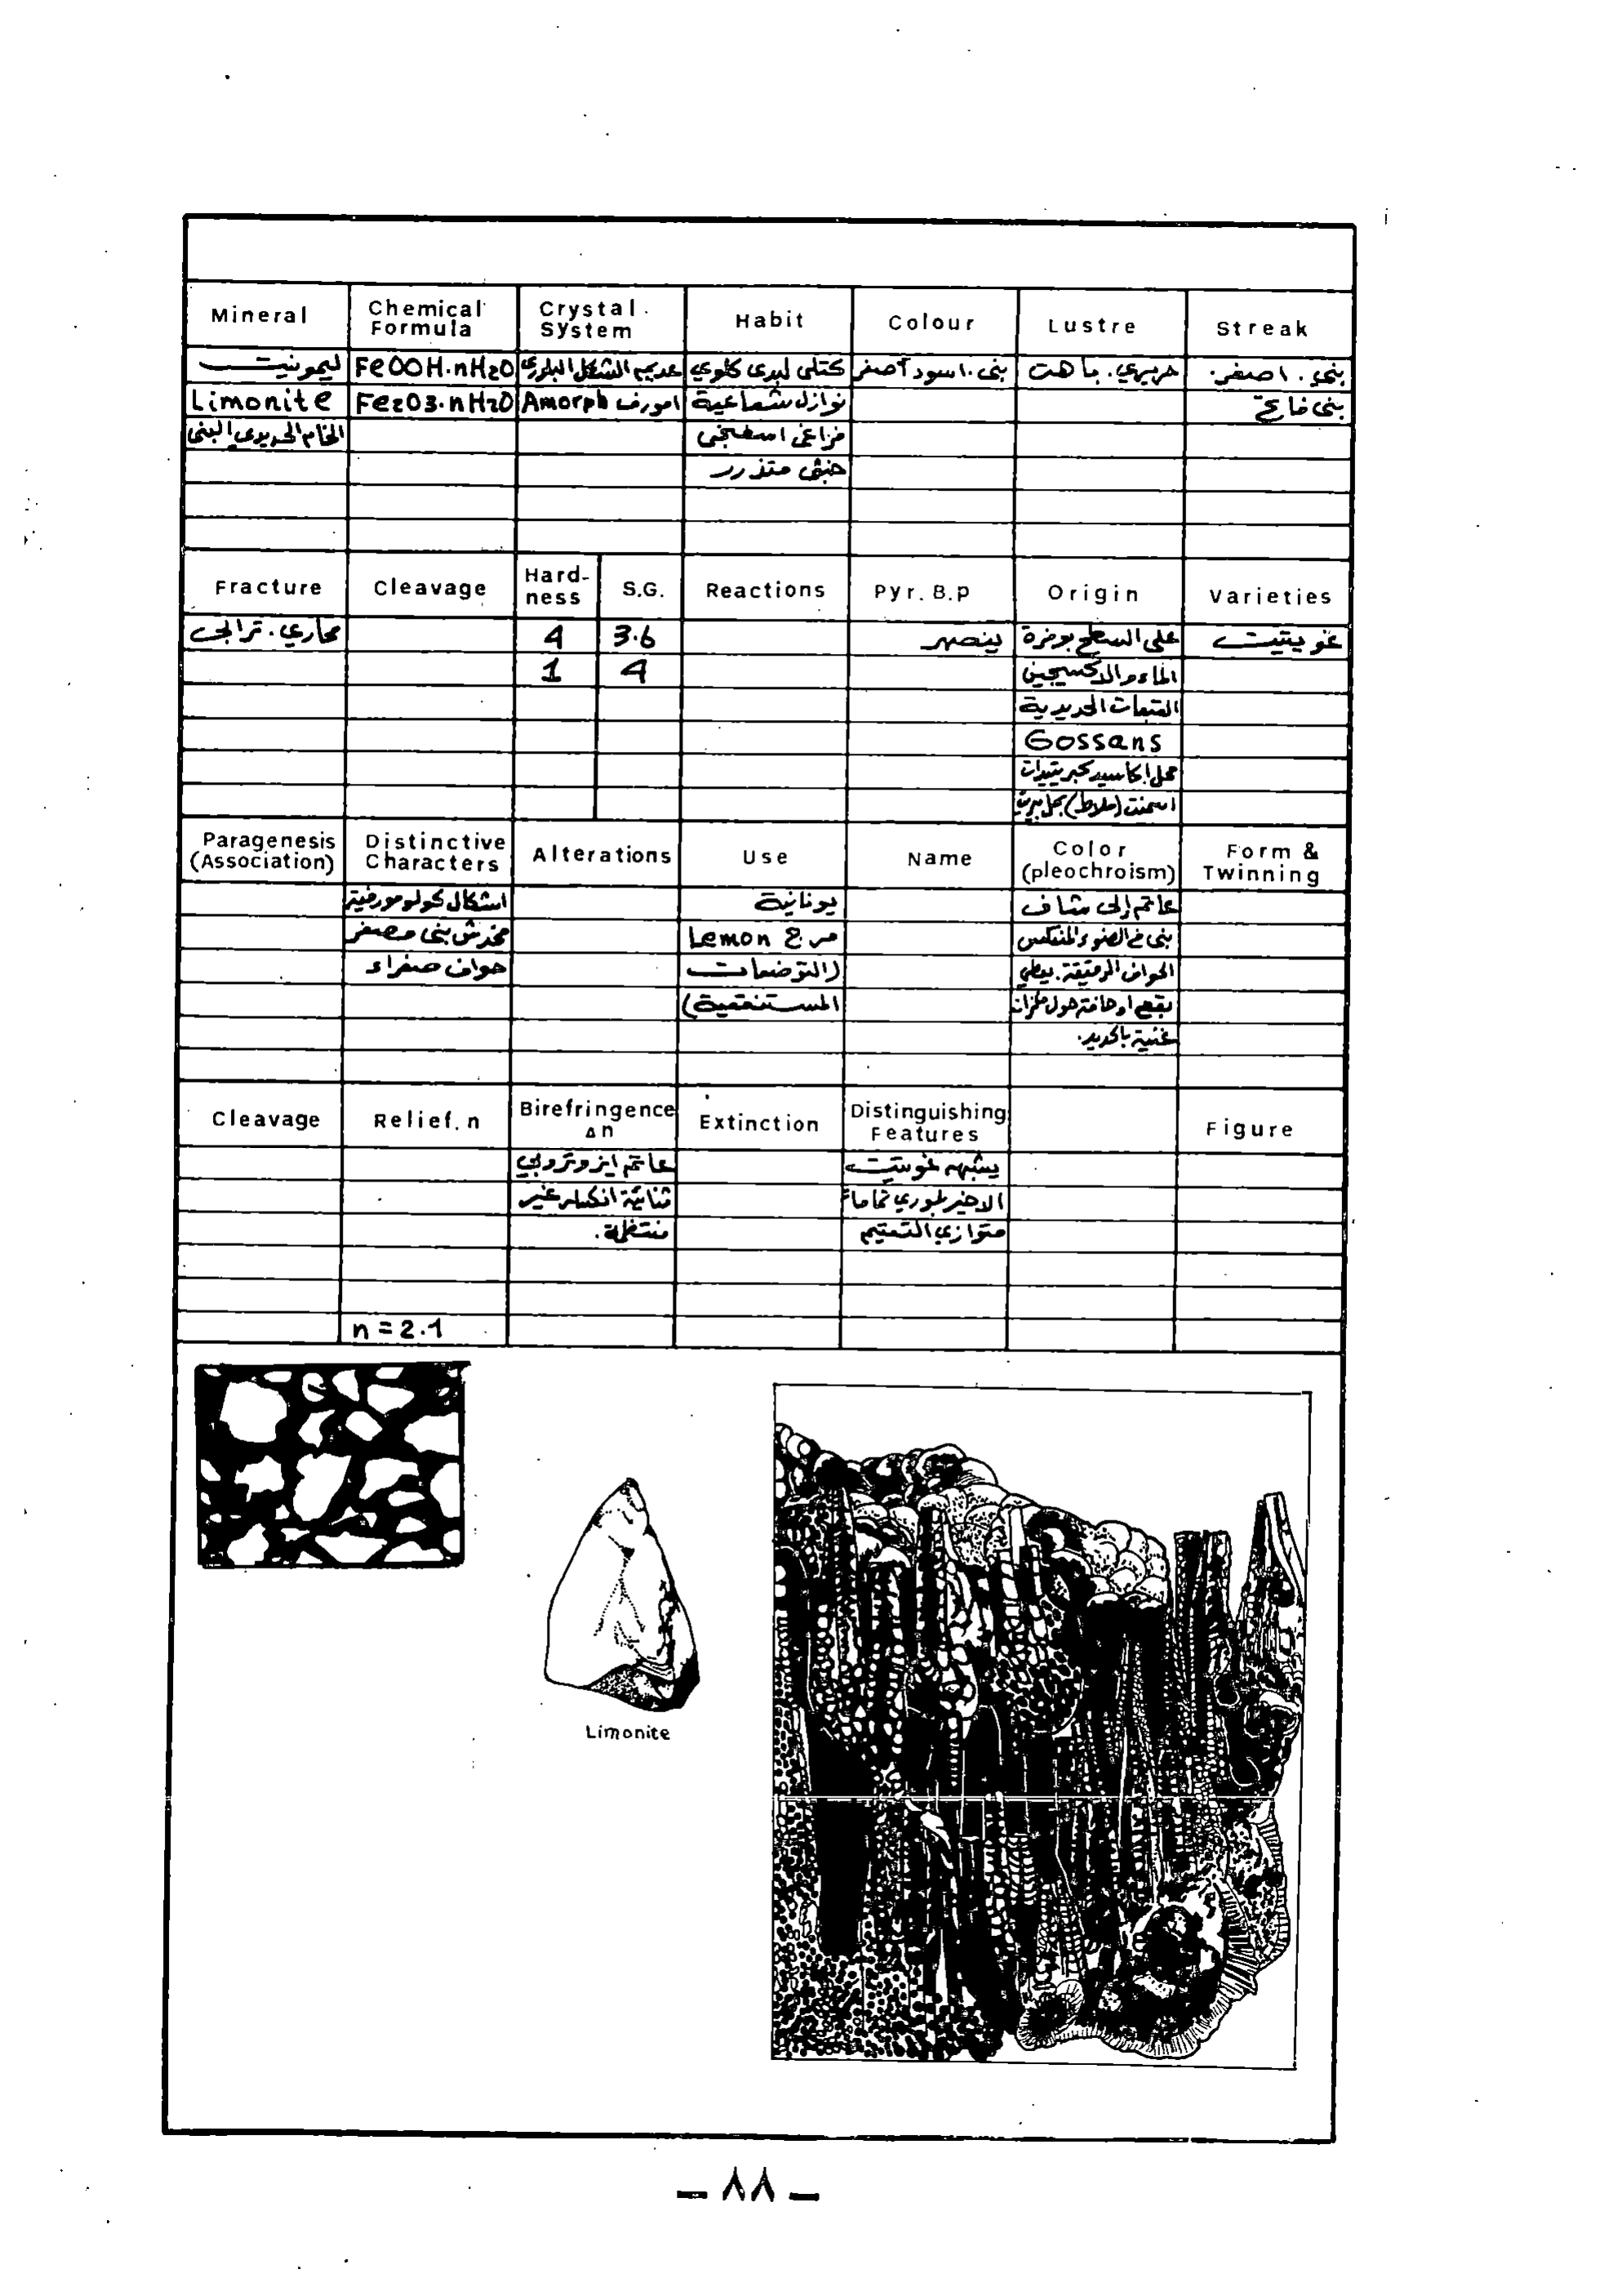 Mineral Chemical Formula Crystal System Habit Colour Lustre Streak
ليمونيت FeOOH.nH2O عديم الشكل البلوري كتلي كلوي بني. اسود أصفر حريري. باهت بني. اصفر.
Limonite Fe2O3.nH2O Amorph امورف نوازل شعاعية بني فاتح
الخام الحديدي البني اسفنجي
Fracture Cleavage Hardness S.G. Reactions Pyr.B.p Origin Varieties
محاري. ترابي 4 3.6 ينصهر على السطح بوفرة غويتيت
1 4 الماء والاكسجين
القبعات الحديدية
Gossans
محل اكاسيد كبريتيدات
اسمنت (ملاط)
Paragenesis (Association) Distinctive Characters Alterations Use Name Color (pleochroism) Form & Twinning
اشكال كولومورفية يونانية عاتم إلى شاف
مخدش بني مصفر مرج Lemon بني في الضوء المنعكس
حواف صفراء (التوضعات الحواف الرقيقة.
المستنقعية) بقع او هالة حول
غنية بالحديد.
Cleavage Relief.n Birefringence Δn Extinction Distinguishing Features Figure
عاتم ايزوتروبي يشبه غوتيت
ثنائية انكسار غير الاخير بلوري تماماً
منتظمة. متوازي التعتيم
n = 2.1
Limonite
– ٨٨ –